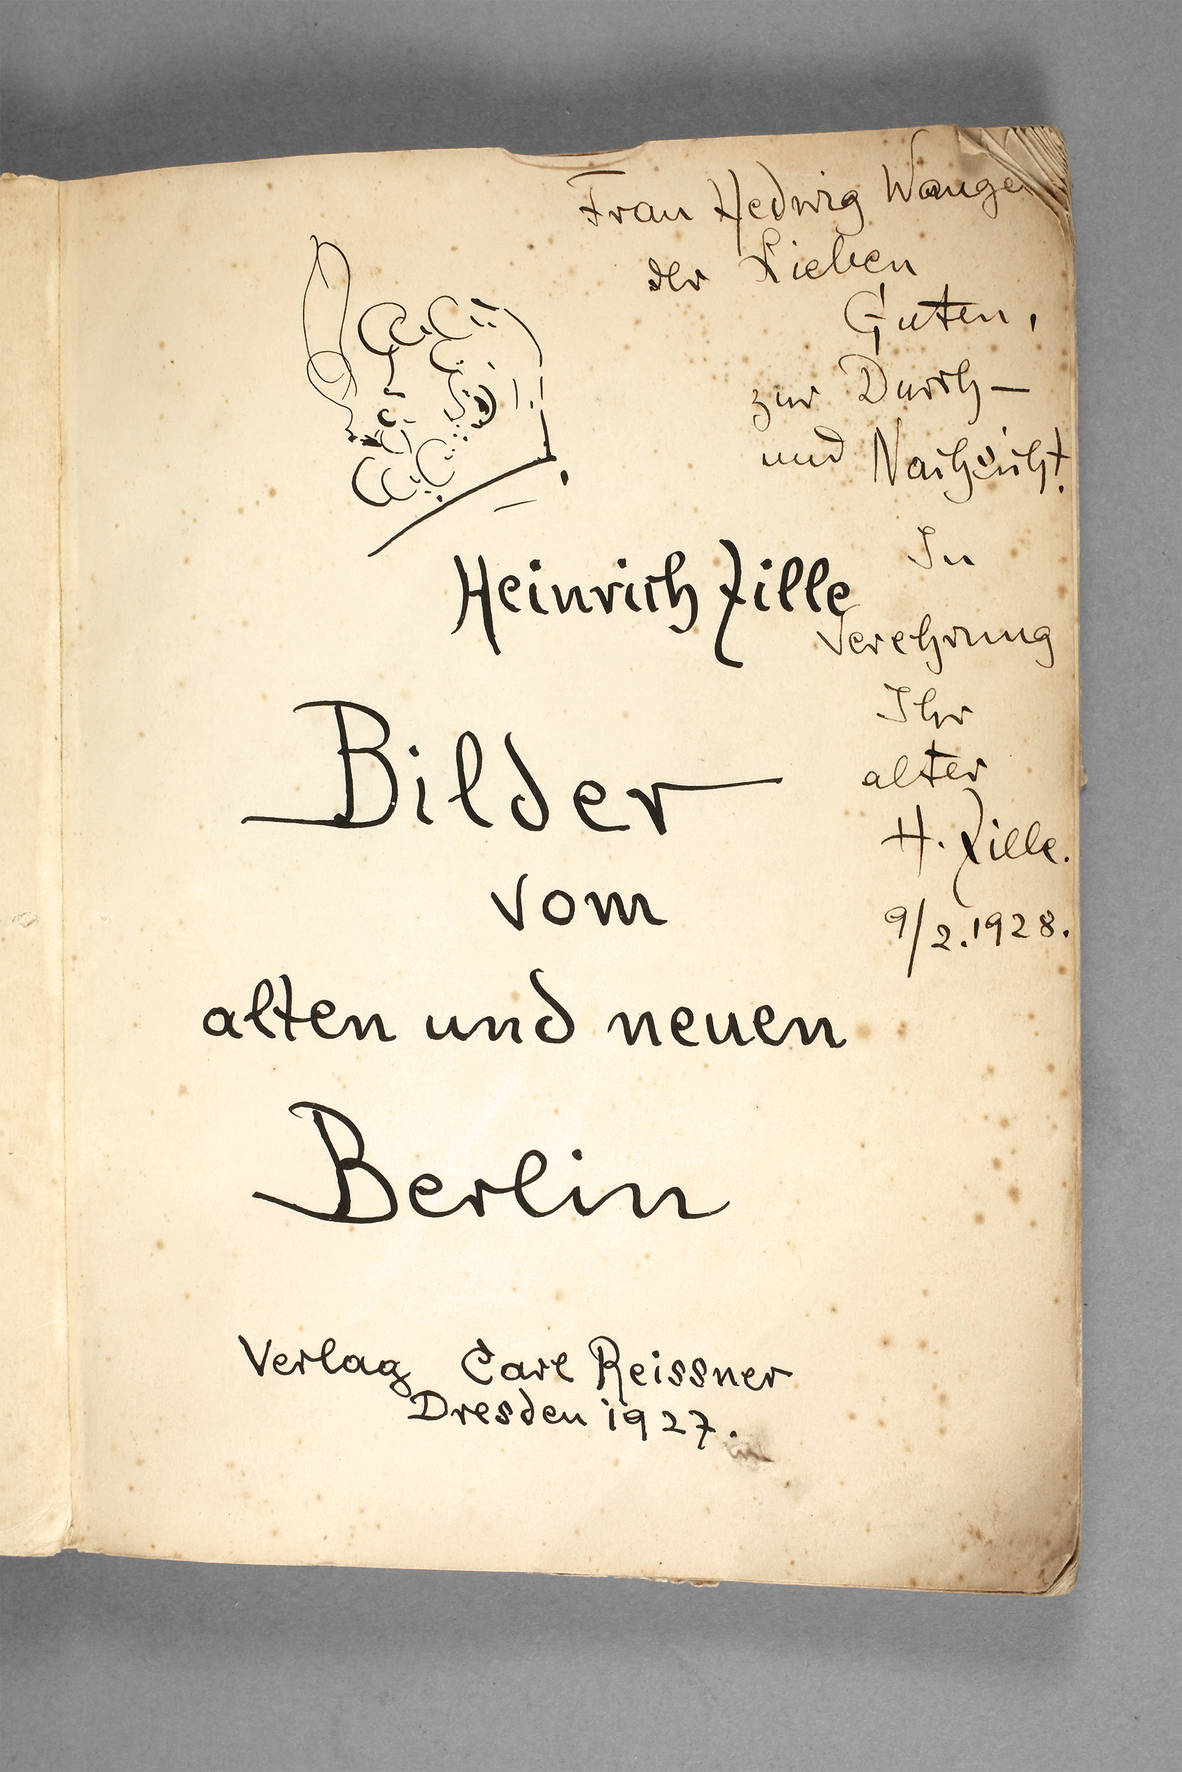 Frau Hedwig Wange
der Lieben
Guten,
zur Durch-
und Nachsicht!
In
Verehrung
Ihr
alter
H. Zille.
9/2.1928.
Heinrich Zille
Bilder
vom
alten und neuen
Berlin
Verlag Carl Reissner
Dresden 1927.